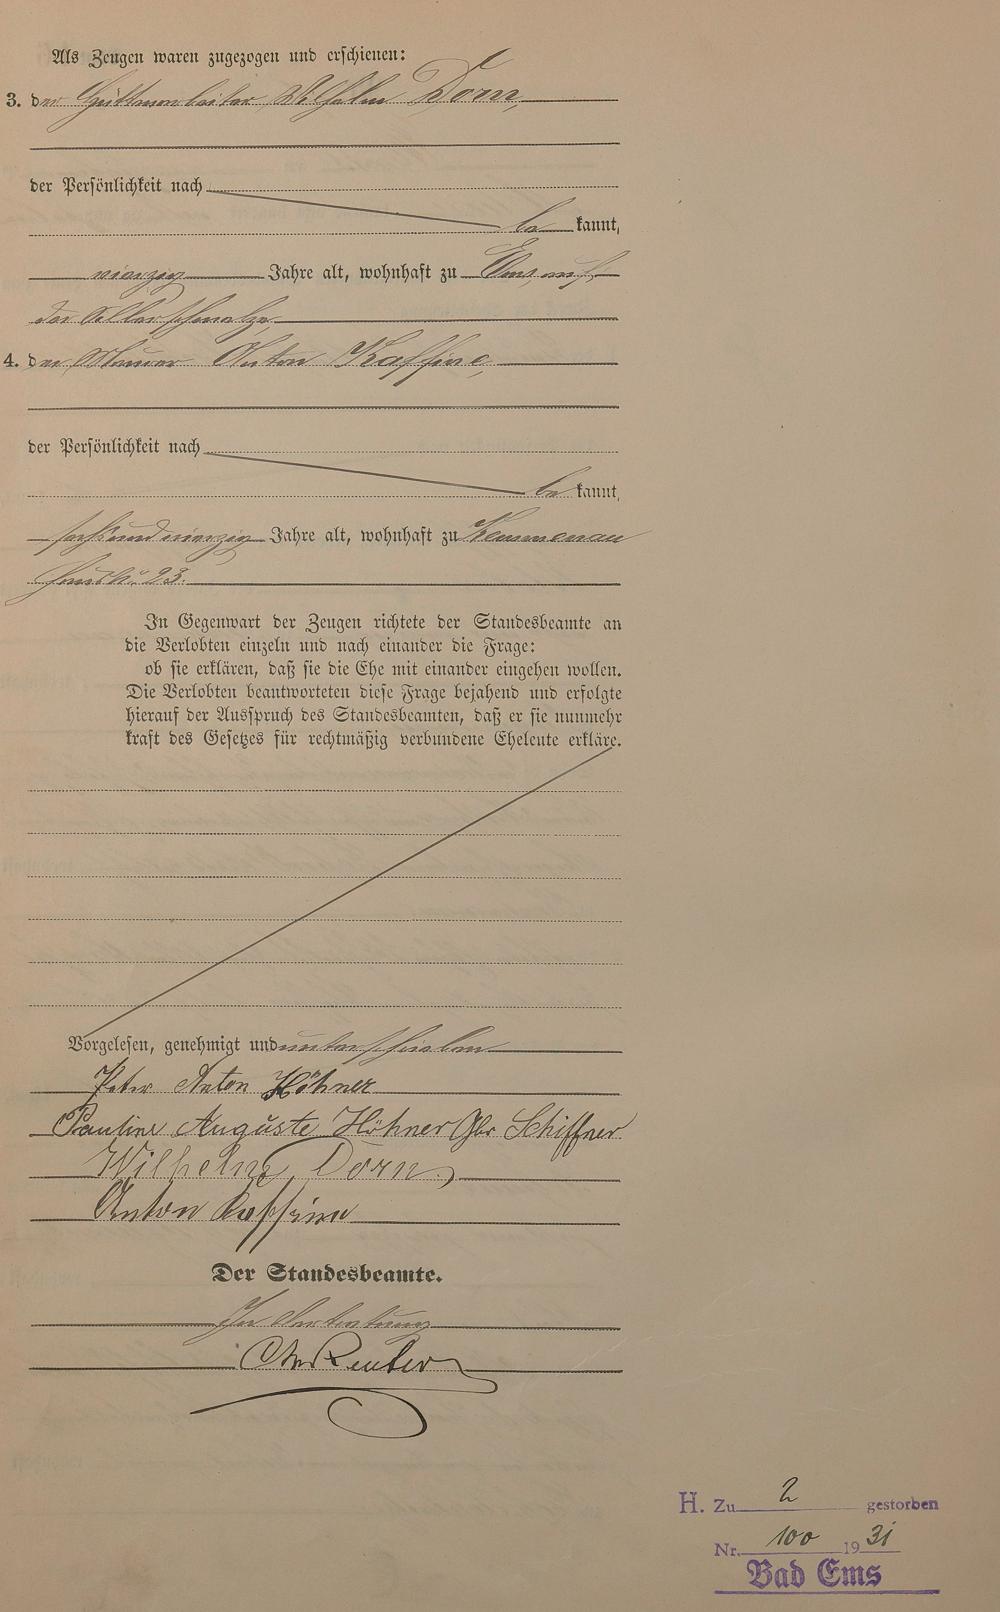 Als Zeugen waren zugezogen und erschienen:
3. der Hüttenarbeiter Wilhelm Dorn,
der Persönlichkeit nach
be kannt,
vierzig Jahre alt, wohnhaft zu Ems, auf
der Silberschmelze,
4. der Hauer Anton Kaffine,
der Persönlichkeit nach
be kannt,
sechsundvierzig Jahre alt, wohnhaft zu Kemmenau
23.
In Gegenwart der Zeugen richtete der Standesbeamte an
die Verlobten einzeln und nach einander die Frage:
ob sie erklären, daß sie die Ehe mit einander eingehen wollen.
Die Verlobten beantworteten diese Frage bejahend und erfolgte
hierauf der Ausspruch des Standesbeamten, daß er sie nunmehr
kraft des Gesetzes für rechtmäßig verbundene Eheleute erkläre.
Vorgelesen, genehmigt und unterschrieben
Peter Anton Höhner
Pauline Auguste Höhner Gbr Schiffner
Wilhelm Dorn
Anton Kaffine
Der Standesbeamte.
In Vertretung
Reuter
H. Zu 2 gestorben
Nr. 100 1931
Bad Ems